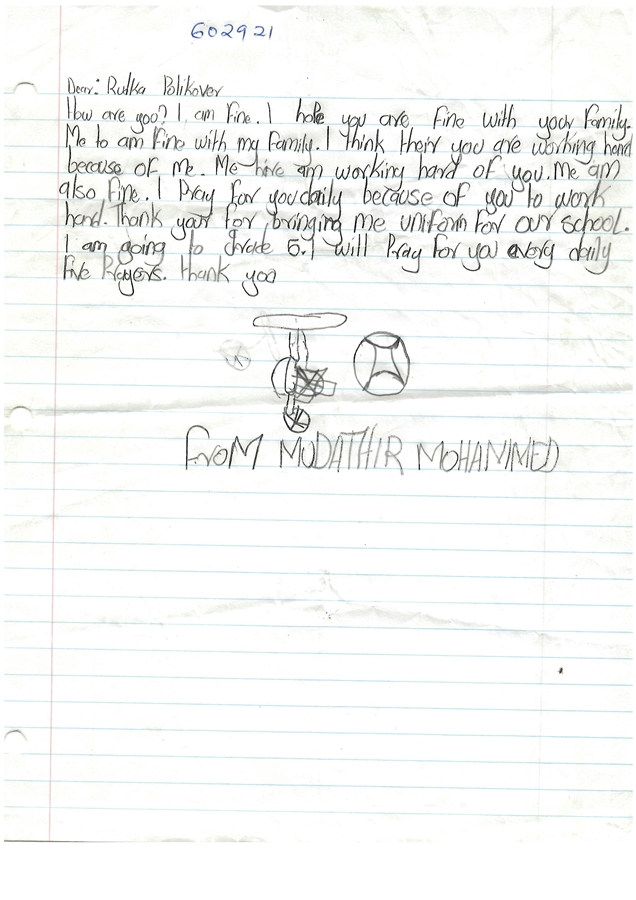 602921
Dear: Rutka Polikover
How are yoo? I am fine. I hope you are fine with your family.
Me to am fine with my family. I think their you are working hard
because of me. Me hire am working hard of you. Me am
also fine. I pray for you daily because of you to work
hand. Thank your for bringing me uniform for our school.
I am going to Grade 5. I will Pray for you every daily
five Prayers. thank yoo
from MUDATHIR MOHAMMED